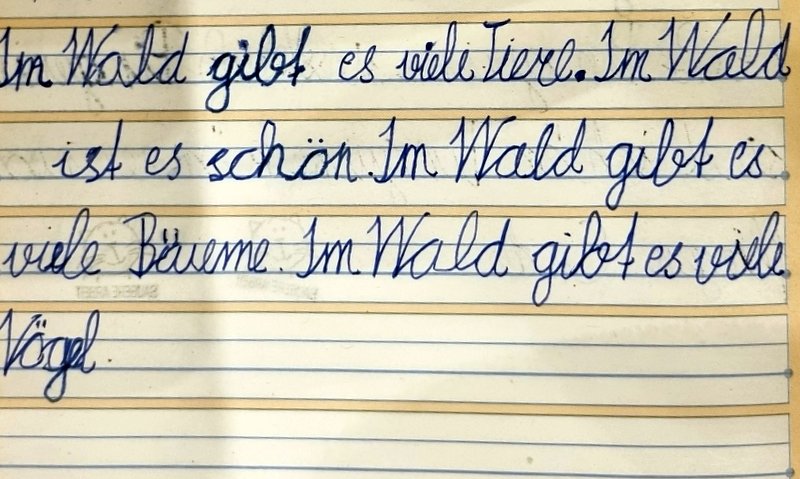 Im Wald gibt es viele Tiere. Im Wald
ist es schön. Im Wald gibt es
viele Bäueme. Im Wald gibt es viele
Vögel.